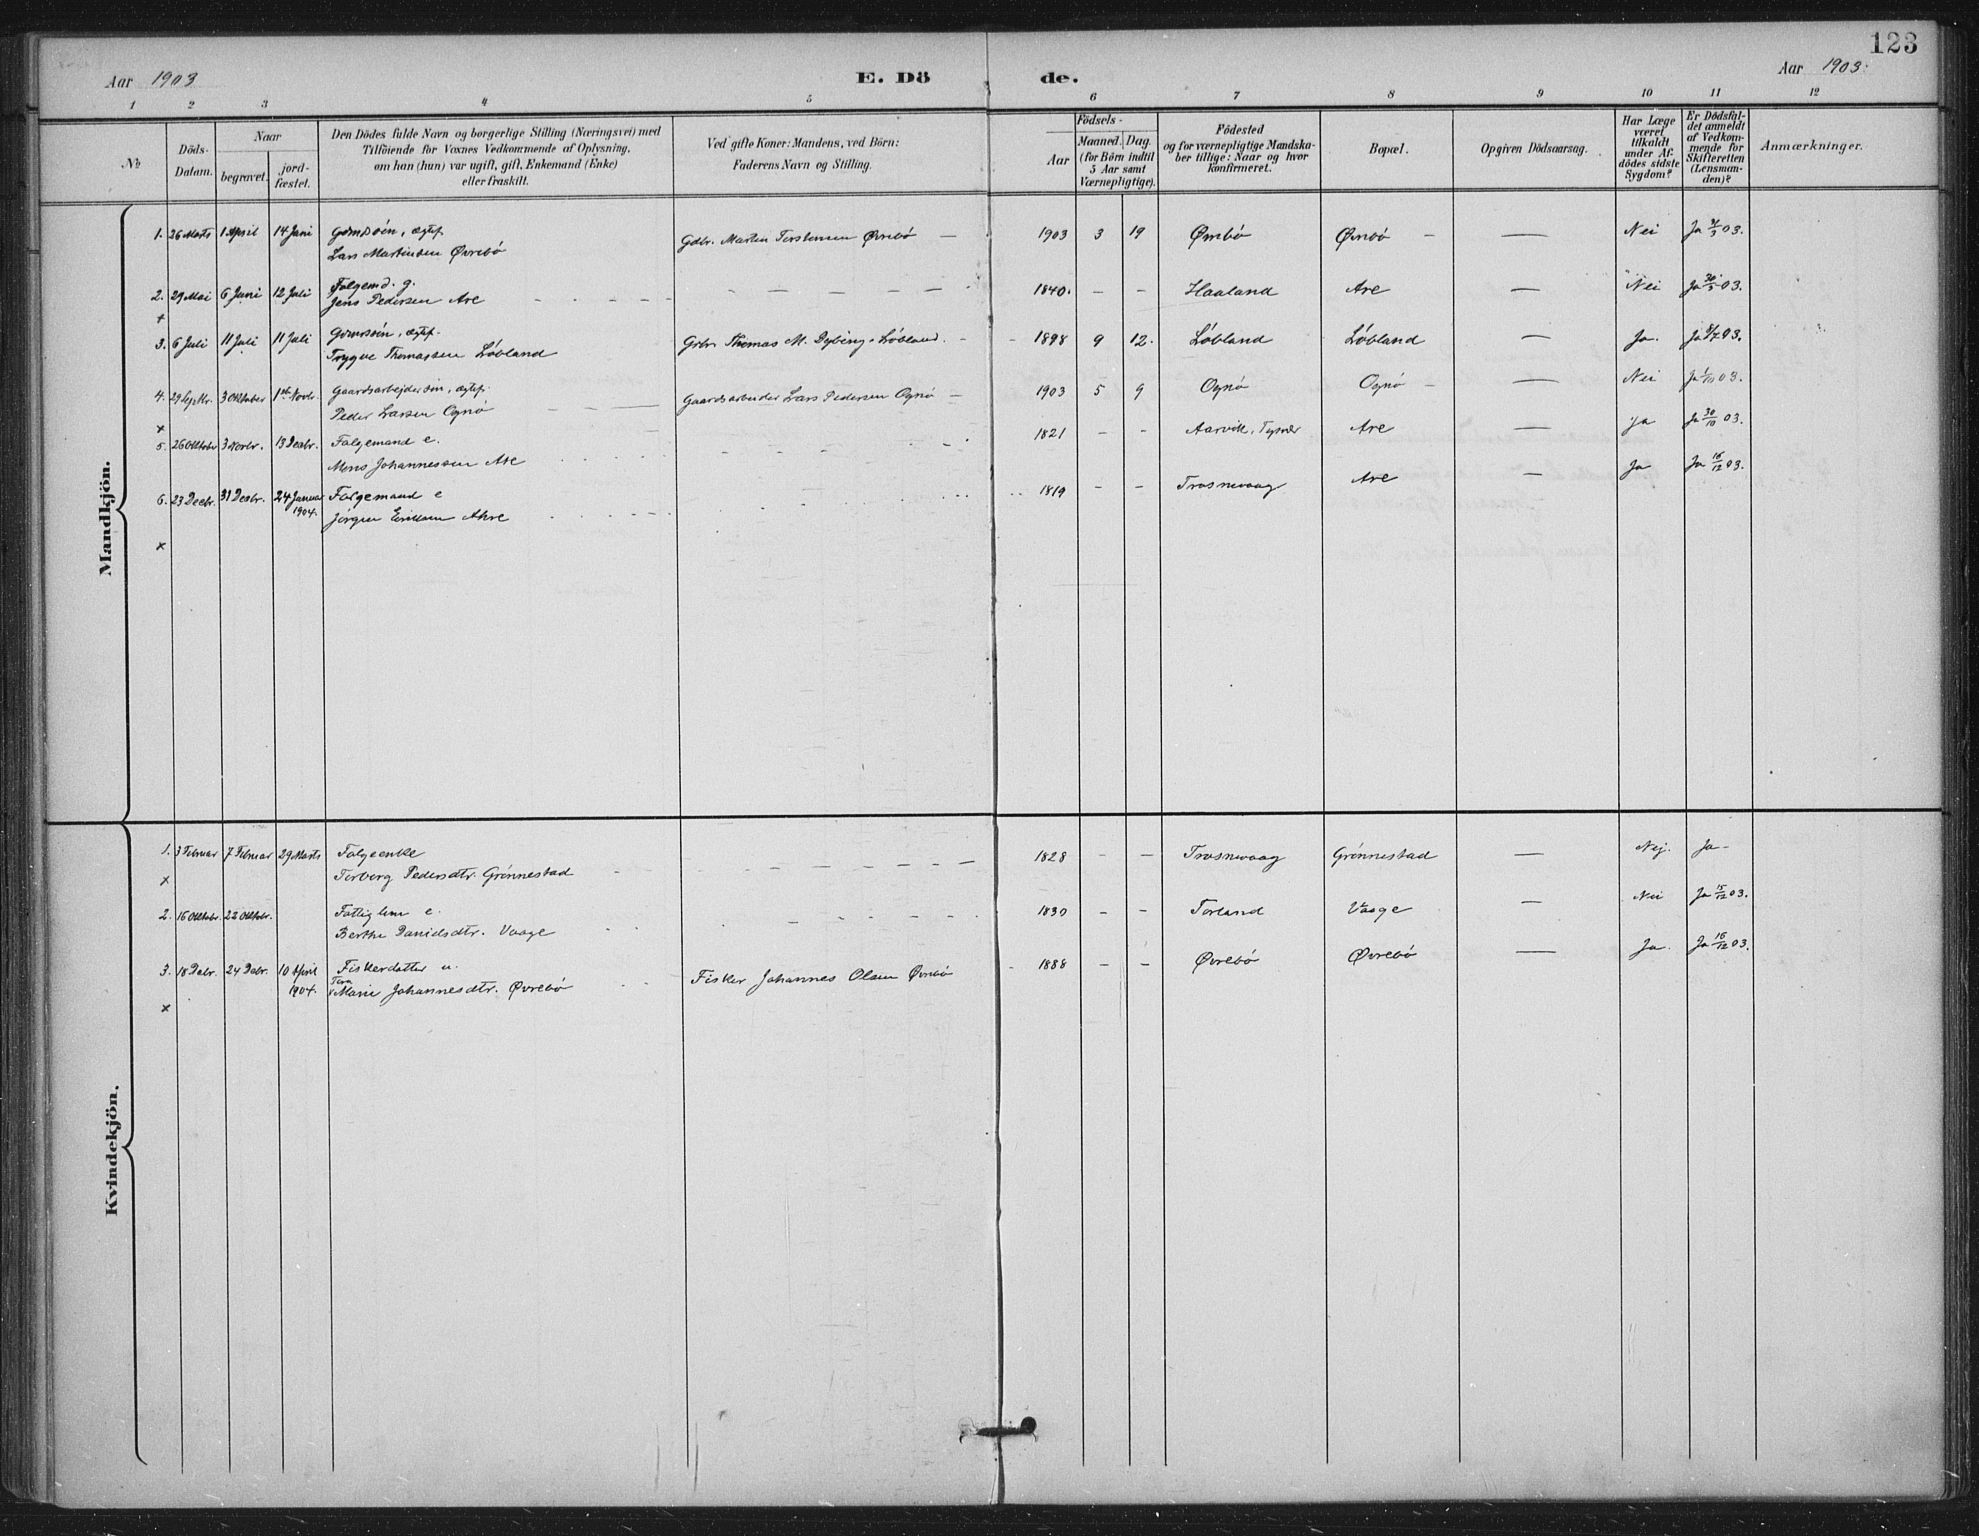 123
Aar 1903
E. Dö de.
Aar 1903.
1 2 3 4 5 6 7 8 9 10 11 12
№
Döds-
Datum.
Naar
begravet.
jord-
fæstet.
Den Dödes fulde Navn og borgerlige Stilling (Næringsvei) med
Tilföiende for Voxnes Vedkommende af Oplysning,
om han (hun) var ugift, gift, Enkemand (Enke)
eller fraskilt.
Ved gifte Koner: Mandens, ved Börn:
Faderens Navn og Stilling.
Födsels-
Aar
Maaned. Dag.
(for Börn indtil
5 Aar samt
Værnepligtige).
Födested
og for værnepligtige Mandska-
ber tillige: Naar og hvor
konfirmeret.
Bopæl.
Opgiven Dödsaarsag.
Har Læge
været
tilkaldt
under Af-
dödes sidste
Sygdom?
Er Dödsfal-
det anmeldt
af Vedkom-
mende for
Skifteretten
(Lensman-
den)?
Anmærkninger.
Mandkjön.
1. 26 Marts 1 April 14 Juni Gdmdsøn, ægtef. Gdbr. Marten Torstensen Øvrebö — 1903 3 19 Øvrebö Øvrebö — — Nei Ja 31/3 03.
Lars Martinsen Øvrebö
2. 29 Mai 6 Juni 12 Juli Folgemd. g. 1840. — — Haaland Are — Nei Ja 30/5 03.
Jens Pedersen Are
+
3. 6 Juli 11 Juli 11 Juli Gdmdsøn, ægtef. Gdbr. Thomas M. Løbland. 1898 9 12. Løbland Løbland — Ja. Ja 8/7 03.
Trygve Thomassen Løbland
4. 29 Septbr. 3 Oktober 1ste Novbr. Gaardsarbeidersøn, ægtef. Gaardsarbeider Lars Pedersen Ognö — 1903 5 9 Ognö Ognö — — Nei Ja 1/10 03.
Peder Larsen Ognö
x
5. 26 Oktober 3 Novbr. 13 Decbr. Folgemand e. 1821 — — Aarvik, Tysvær Are — Ja Ja 30/10 03.
Mons Johannessen Are
6. 23 Decbr. 31 Decbr. 24 Januar Folgemand e 1819 — — Trosnevaag Are — Ja Ja 16/12 03.
1904.
Jörgen Eriksen Ahre
x
Kvindekjön.
1. 3 Februar 7 Februar 29 Marts Folgeenke 1828 — — Trosnevaag Grönnestad — Nej. Ja —
Torborg Pedersdtr. Grönnestad
x
2. 16 Oktobr. 22 Oktobr. Fattiglem e. 1830 — — Torland Vaage — Nei Ja 15/12 03.
Berthe Danielsdtr. Vaage
3. 18 Decbr. 24 Decbr. 10 April Fiskerdatter u. Fisker Johannes Olsen Øvrebö 1888 — — Øvrebö Øvrebö — Ja. Ja 16/12 03.
1904.
Tora
Marie Johannesdtr. Øvrebö
x